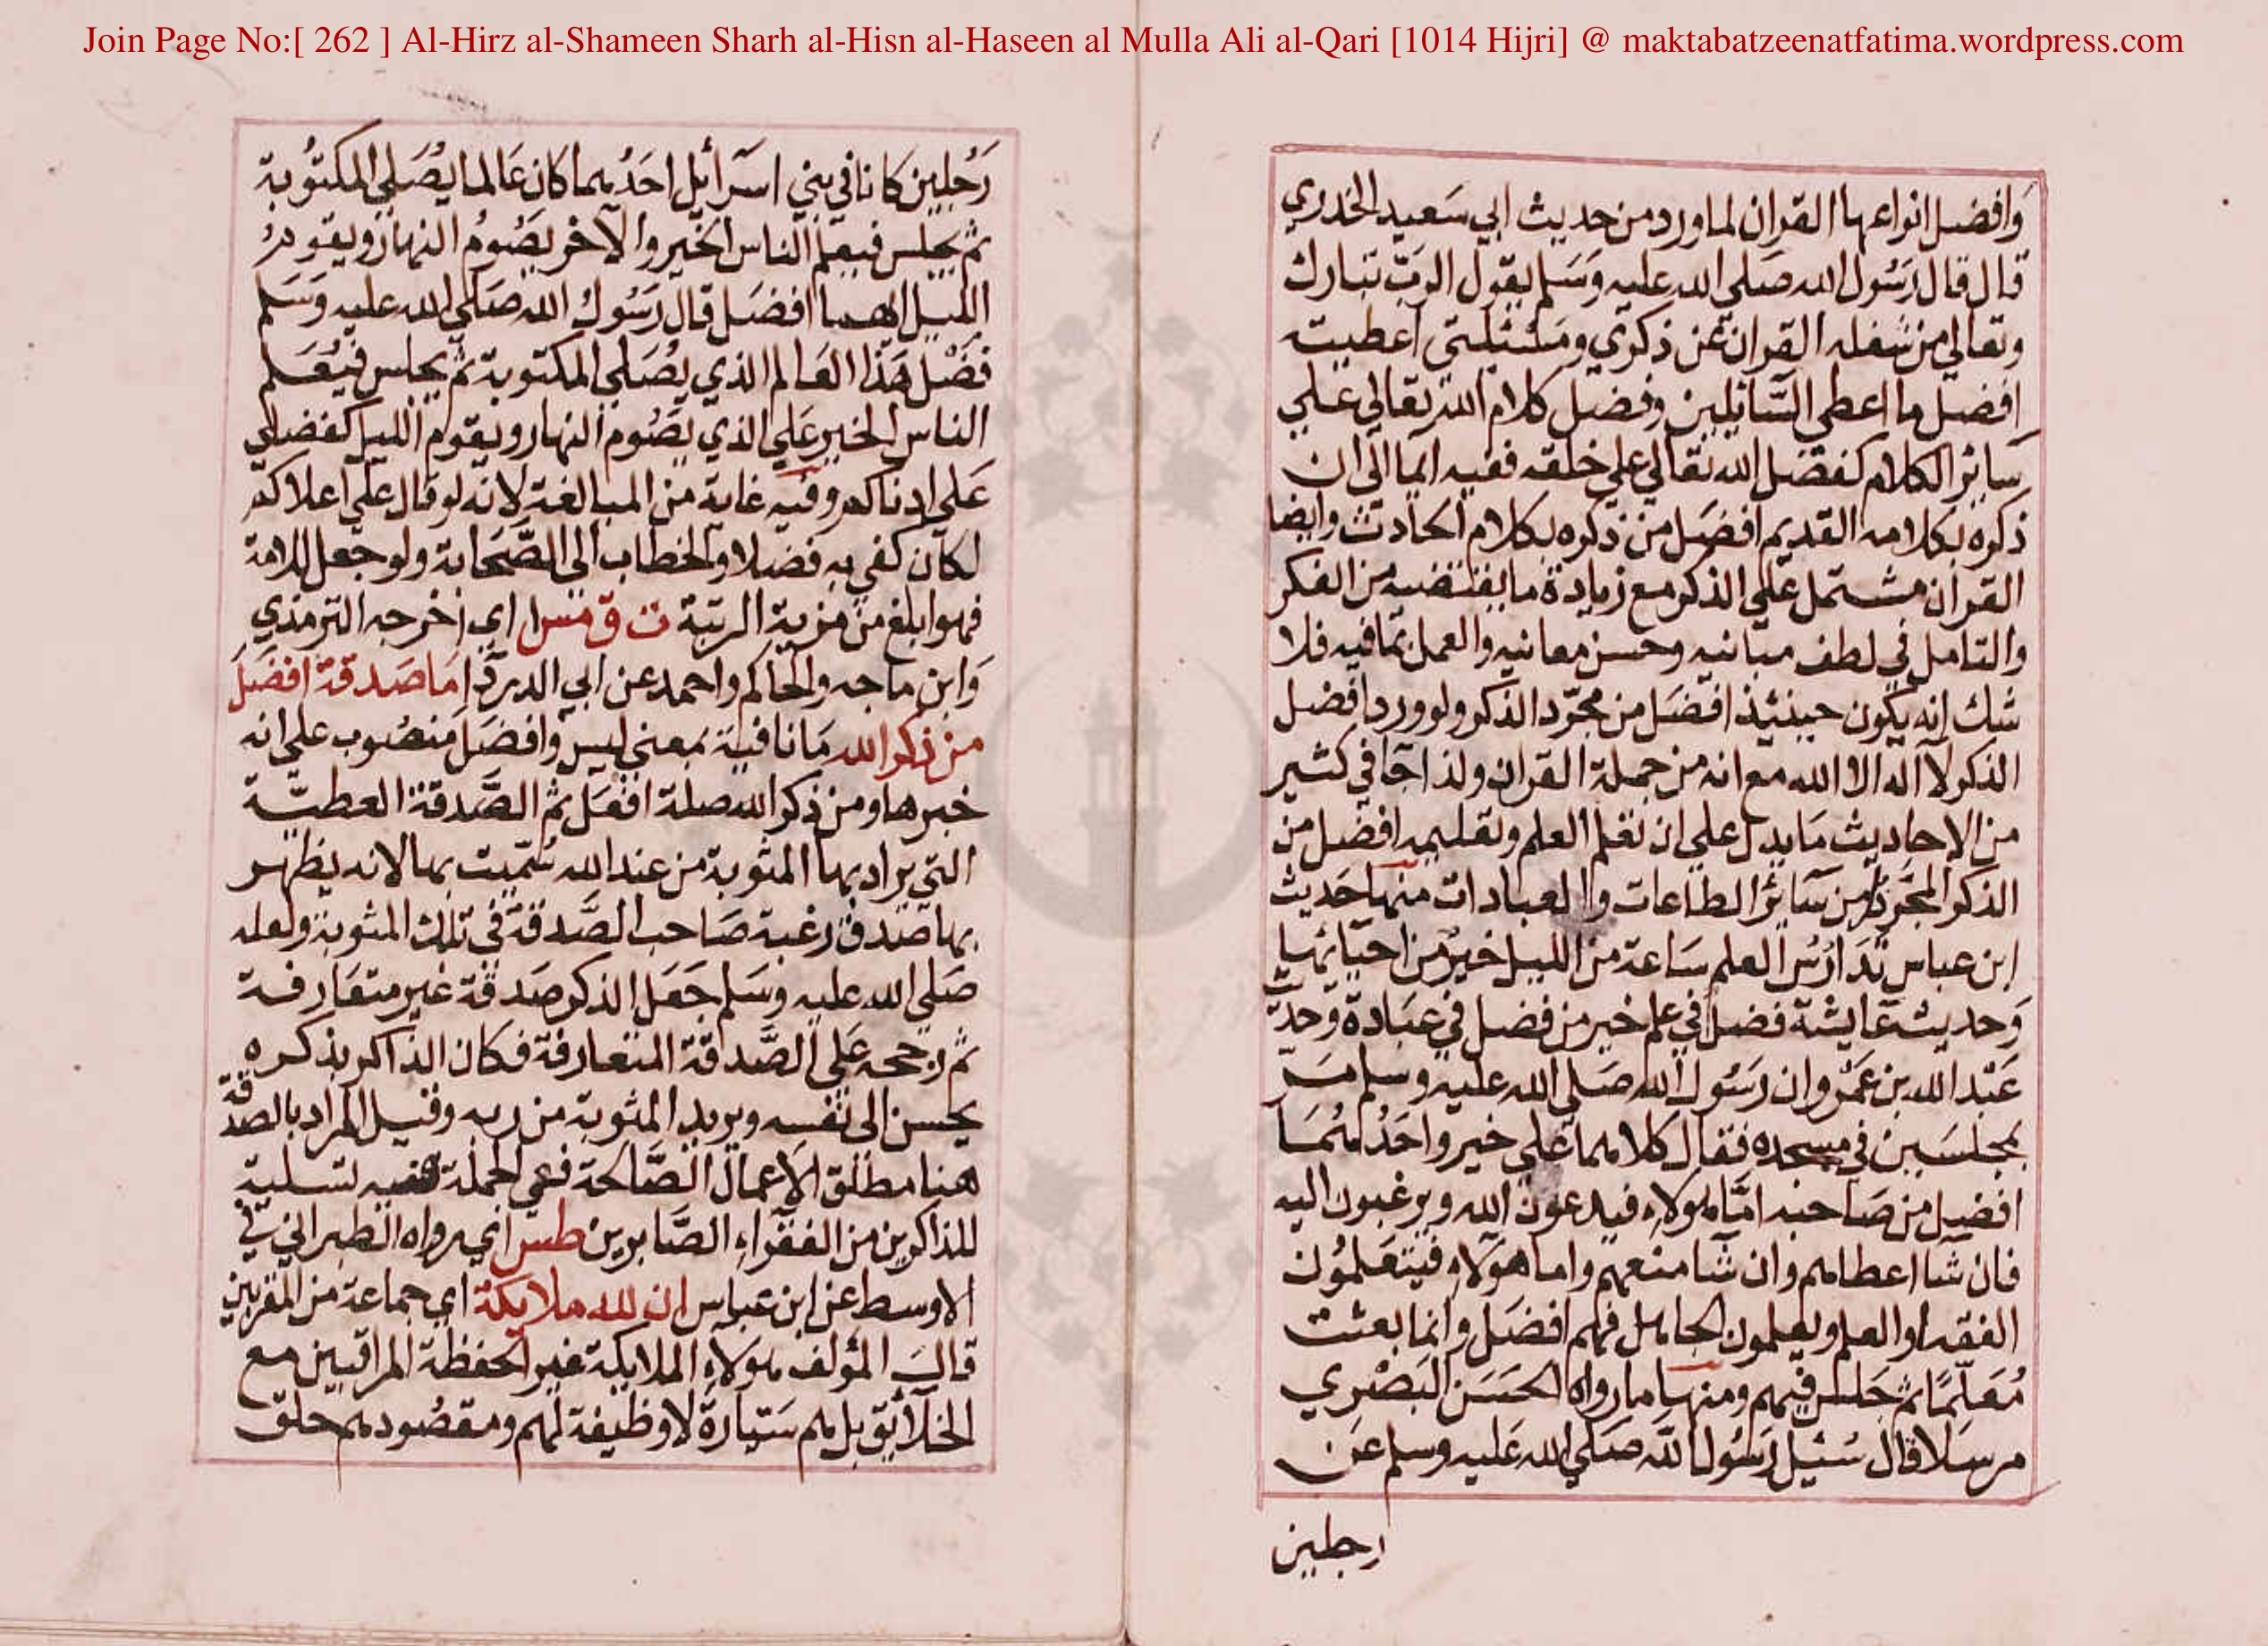 Join Page No:[ 262 ] Al-Hirz al-Shameen Sharh al-Hisn al-Haseen al Mulla Ali al-Qari [1014 Hijri] @ maktabatzeenatfatima.wordpress.com
وَافضل انواعها القران لما ورد من حديث ابي سَعيد الخدري
قال قال رَسُول الله صَلي الله عليه وَسَلم يقول الربّ تبارك
وتعالي من شغله القران عن ذكري ومَسْئلتي اعطيته
افضل ما اعطي السَّائلين وفضل كلام الله تعالي علي
سَائر الكلام كفضل الله تعالي علي خلقه ففيه ايما الي ان
ذكره بكلامه القديم افضَل من ذكره بكلام الحادث وايضا
القران مشتمل علي الذكر مع زيادة ما يقتضيه من الفكر
والتامل في لطف مبانيه وحسن معانيه والعمل بما فيه فلا
شك انه يكون حينئذ افضَل من مجرّد الذكر ولو ورد افضل
الذكر لا اله الا الله مع انه من جملة القران ولذا جآ في كثير
من الاحاديث مَا يدل علي ان تعلم العلم وتعليمه افضل من
الذكر المجَرد من سَائر الطاعات والعبادات منها حَديث
ابن عباس تَدَارُسُ العلم سَاعة من الليل خيرٌ من احيَائها
وَحديث عَايشة فضل في علم خير من فضل في عبَادة وحديث
عَبْد الله بن عَمْرو ان رَسُول الله صَلي الله عليه وسلم مَر
بمجلسَين في مسجده فقال كلاهما علي خير واحَدُهُمَا
افضل من صَاحبه امّا هولاء فيدعون الله ويرغبون اليه
فان شا اعطاهم وان شا منعهم واما هولاء فيتعَلمُون
الفقه او العلم ويعلمون الجاهل فهم افضَل وانما بعثت
مُعَلّمًا ثم جَلس فيهم ومنها ما رواه الحسَن البَصْري
مرسَلا قال سُئيل رَسُول الله صَلي الله عَليه وسلم عَن
رجلين
رَجُلين كانا في بني اسرائيل احَدُهما كان عَالما يُصَلي المكتُوبة
ثم يجلس فيعلم الناس الخير والاخر يصُومُ النهار ويقوم
الليل ايهما افضَل قال رَسُول الله صَلي الله عليه وَسَلم
فضْل هَذا العَالم الذي يُصَلي المكتوبة ثم يجلس فيُعَلم
الناس الخير عَلي الذي يصُوم النهار ويقوم الليل كفضلي
عَلي ادناكم وفيه غاية من المبالغة لانه لو قال علي اعلاكم
لكان كفي به فضلا والخطاب الي الصَّحَابة ولو جعل للامة
فهو ابلغ من مزية الرتبة ت ق مس ا اي اخرجه الترمذي
وَابن ماجه والحاكم واحمد عن ابي الدردآ مَا صَدقة افضَلَ
من ذكر الله مَا نافية بمعني ليس وافضَل منصُوب علي انه
خبرها ومن ذكر الله صلة افعَل ثم الصَّدقة العطيّة
التي يراد بها المثوبة من عند الله سُمّيت بها لانه يظهر
بها صدق رغبة صَاحب الصَّدقة في تلك المثوبة ولعله
صَلي الله عليه وسَلم جَعَل الذكر صَدقة غير متعَارفة
ثم رجحه عَلي الصَّدقة المتعارفة فكان الذاكر بذكره
يحسن الي نفسه ويريد المثوبة من ربه وقيل المراد بالصدقة
هنا مطلق الاعمال الصَّالحة فعي الجملة ففيه تسلية
للذاكرين من الفقراء الصَّابرين طس اي رواه الطبراني في
الاوسط عن ابن عباس ان لله ملايكة اي جماعة من المقربين
قال المؤلف هولاء الملايكة غير الحفظة المراقبين مع
الخلآئق بل هم سَيّارَة لا وظيفة لهم ومقصُودهم حلق